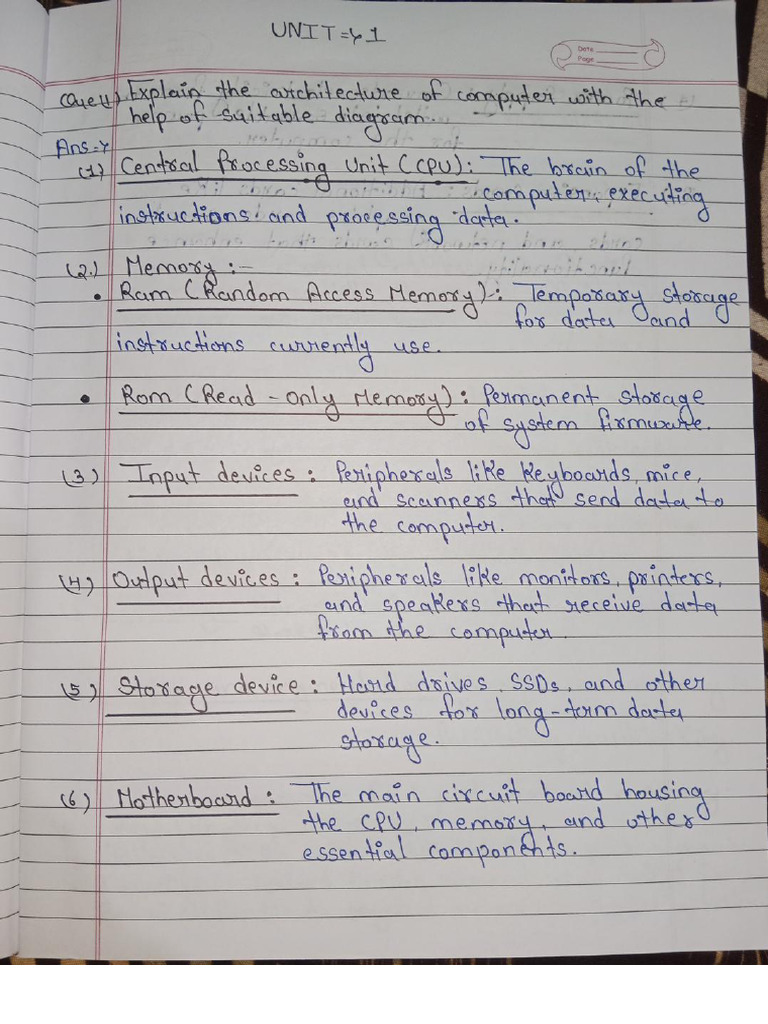 UNIT => 1
Date
Page
Que 4) Explain the architecture of computer with the
help of suitable diagram.
Ans →
(1) Central Processing Unit (CPU): The brain of the
computer, executing
instructions and processing data.
(2.) Memory :-
• Ram (Random Access Memory): Temporary storage
for data and
instructions currently use.
• Rom (Read - only Memory): Permanent storage
of system firmware.
(3) Input devices : Peripherals like keyboards, mice,
and scanners that send data to
the computer.
(4) Output devices : Peripherals like monitors, printers,
and speakers that receive data
from the computer.
(5) Storage device : Hard drives, SSDs, and other
devices for long-term data
storage.
(6) Motherboard : The main circuit board housing
the CPU, memory, and other
essential components.